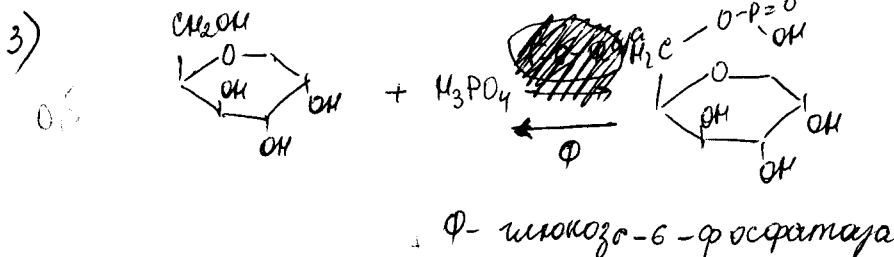 3)
CH2OH
O
OH
OH
OH
+ H3PO4
Ф
H2C
O-P=O
OH
O
OH
OH
OH
0,5
Ф- глюкозо-6-фосфатаза